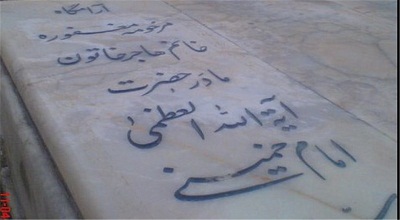 آرامگاه
مرحومه مغفوره
خانم هاجر خاتون
مادر حضرت
آیة الله العظمی
امام خمینی